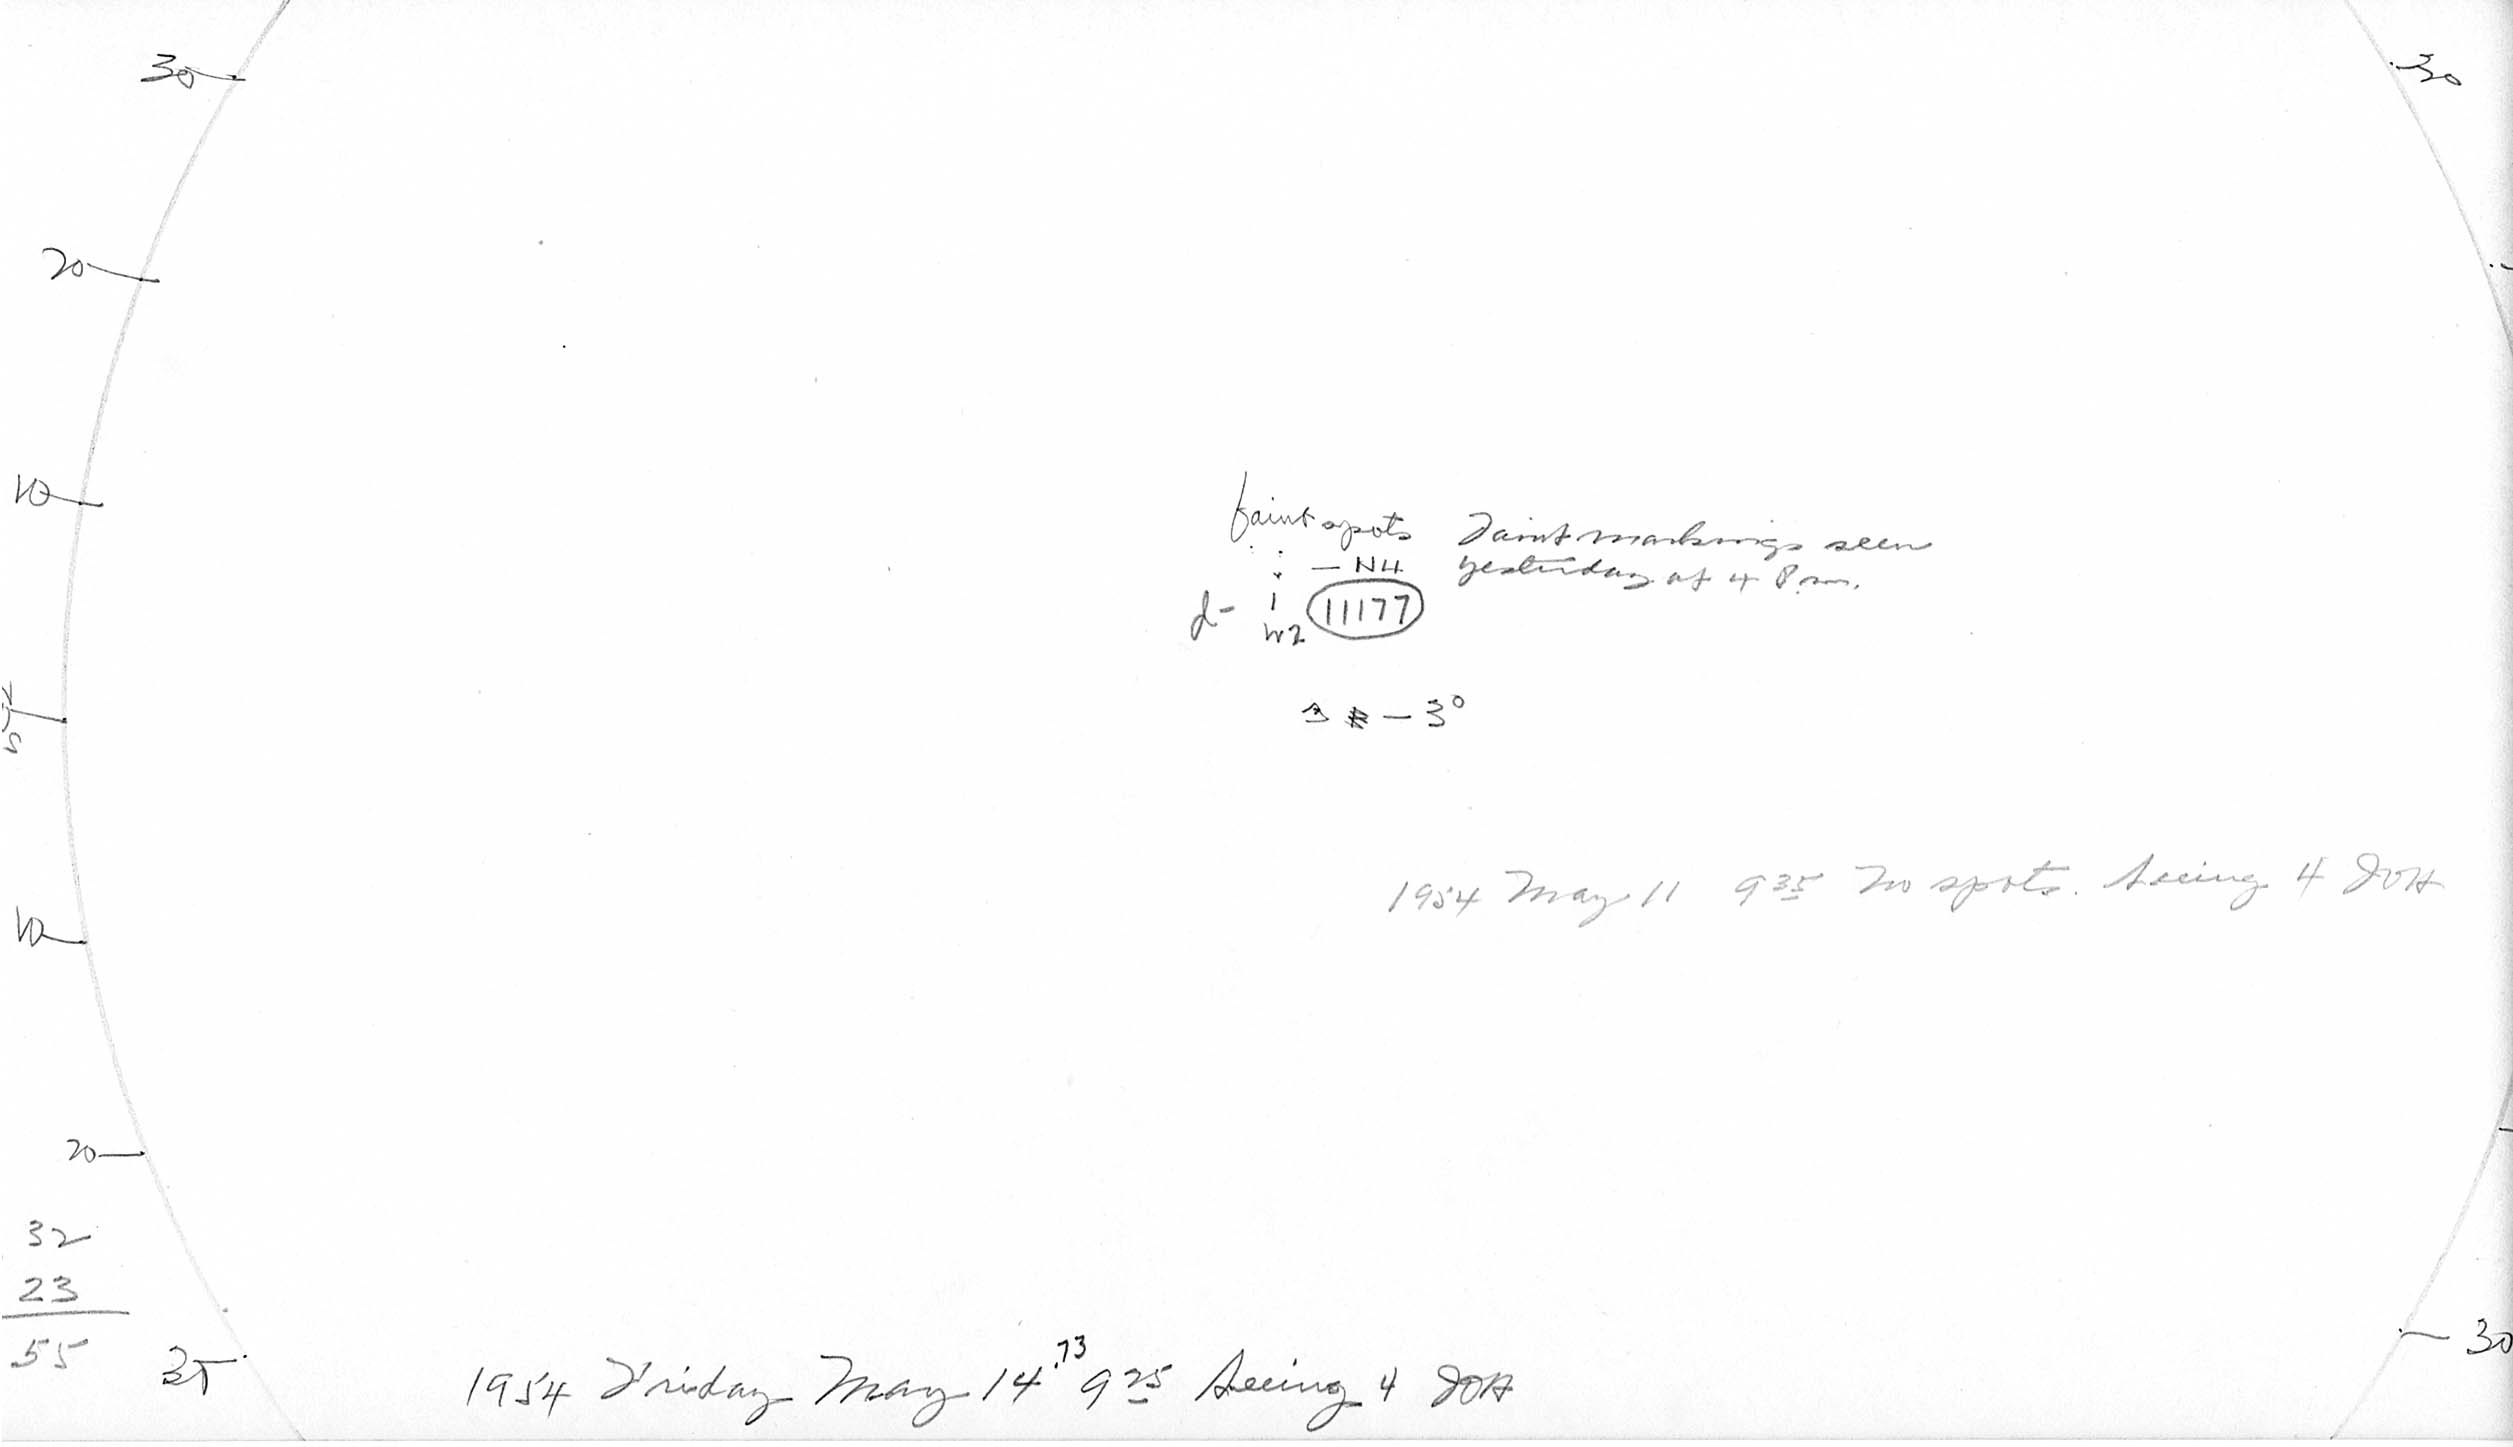 30 30
20
10
faint spots
Faint markings seen
yesterday at 4 P.m.
— N4
d- 1 11177
W2
— 3°
1954 May 11 9 35 No spots. Seeing 4 JOH
10
20
32
23
55
30
30
1954 Friday May 14.73 9 25 Seeing 4 JOH